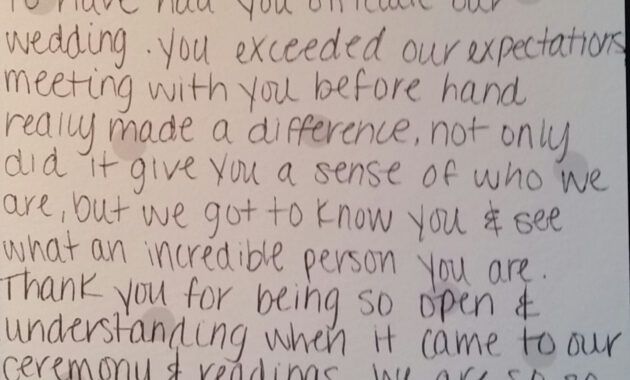 to have had you officiate our
wedding. you exceeded our expectations
meeting with you before hand
really made a difference, not only
did it give you a sense of who we
are, but we got to know you & see
what an incredible person you are.
Thank you for being so open &
understanding when it came to our
ceremony & readings. We are so